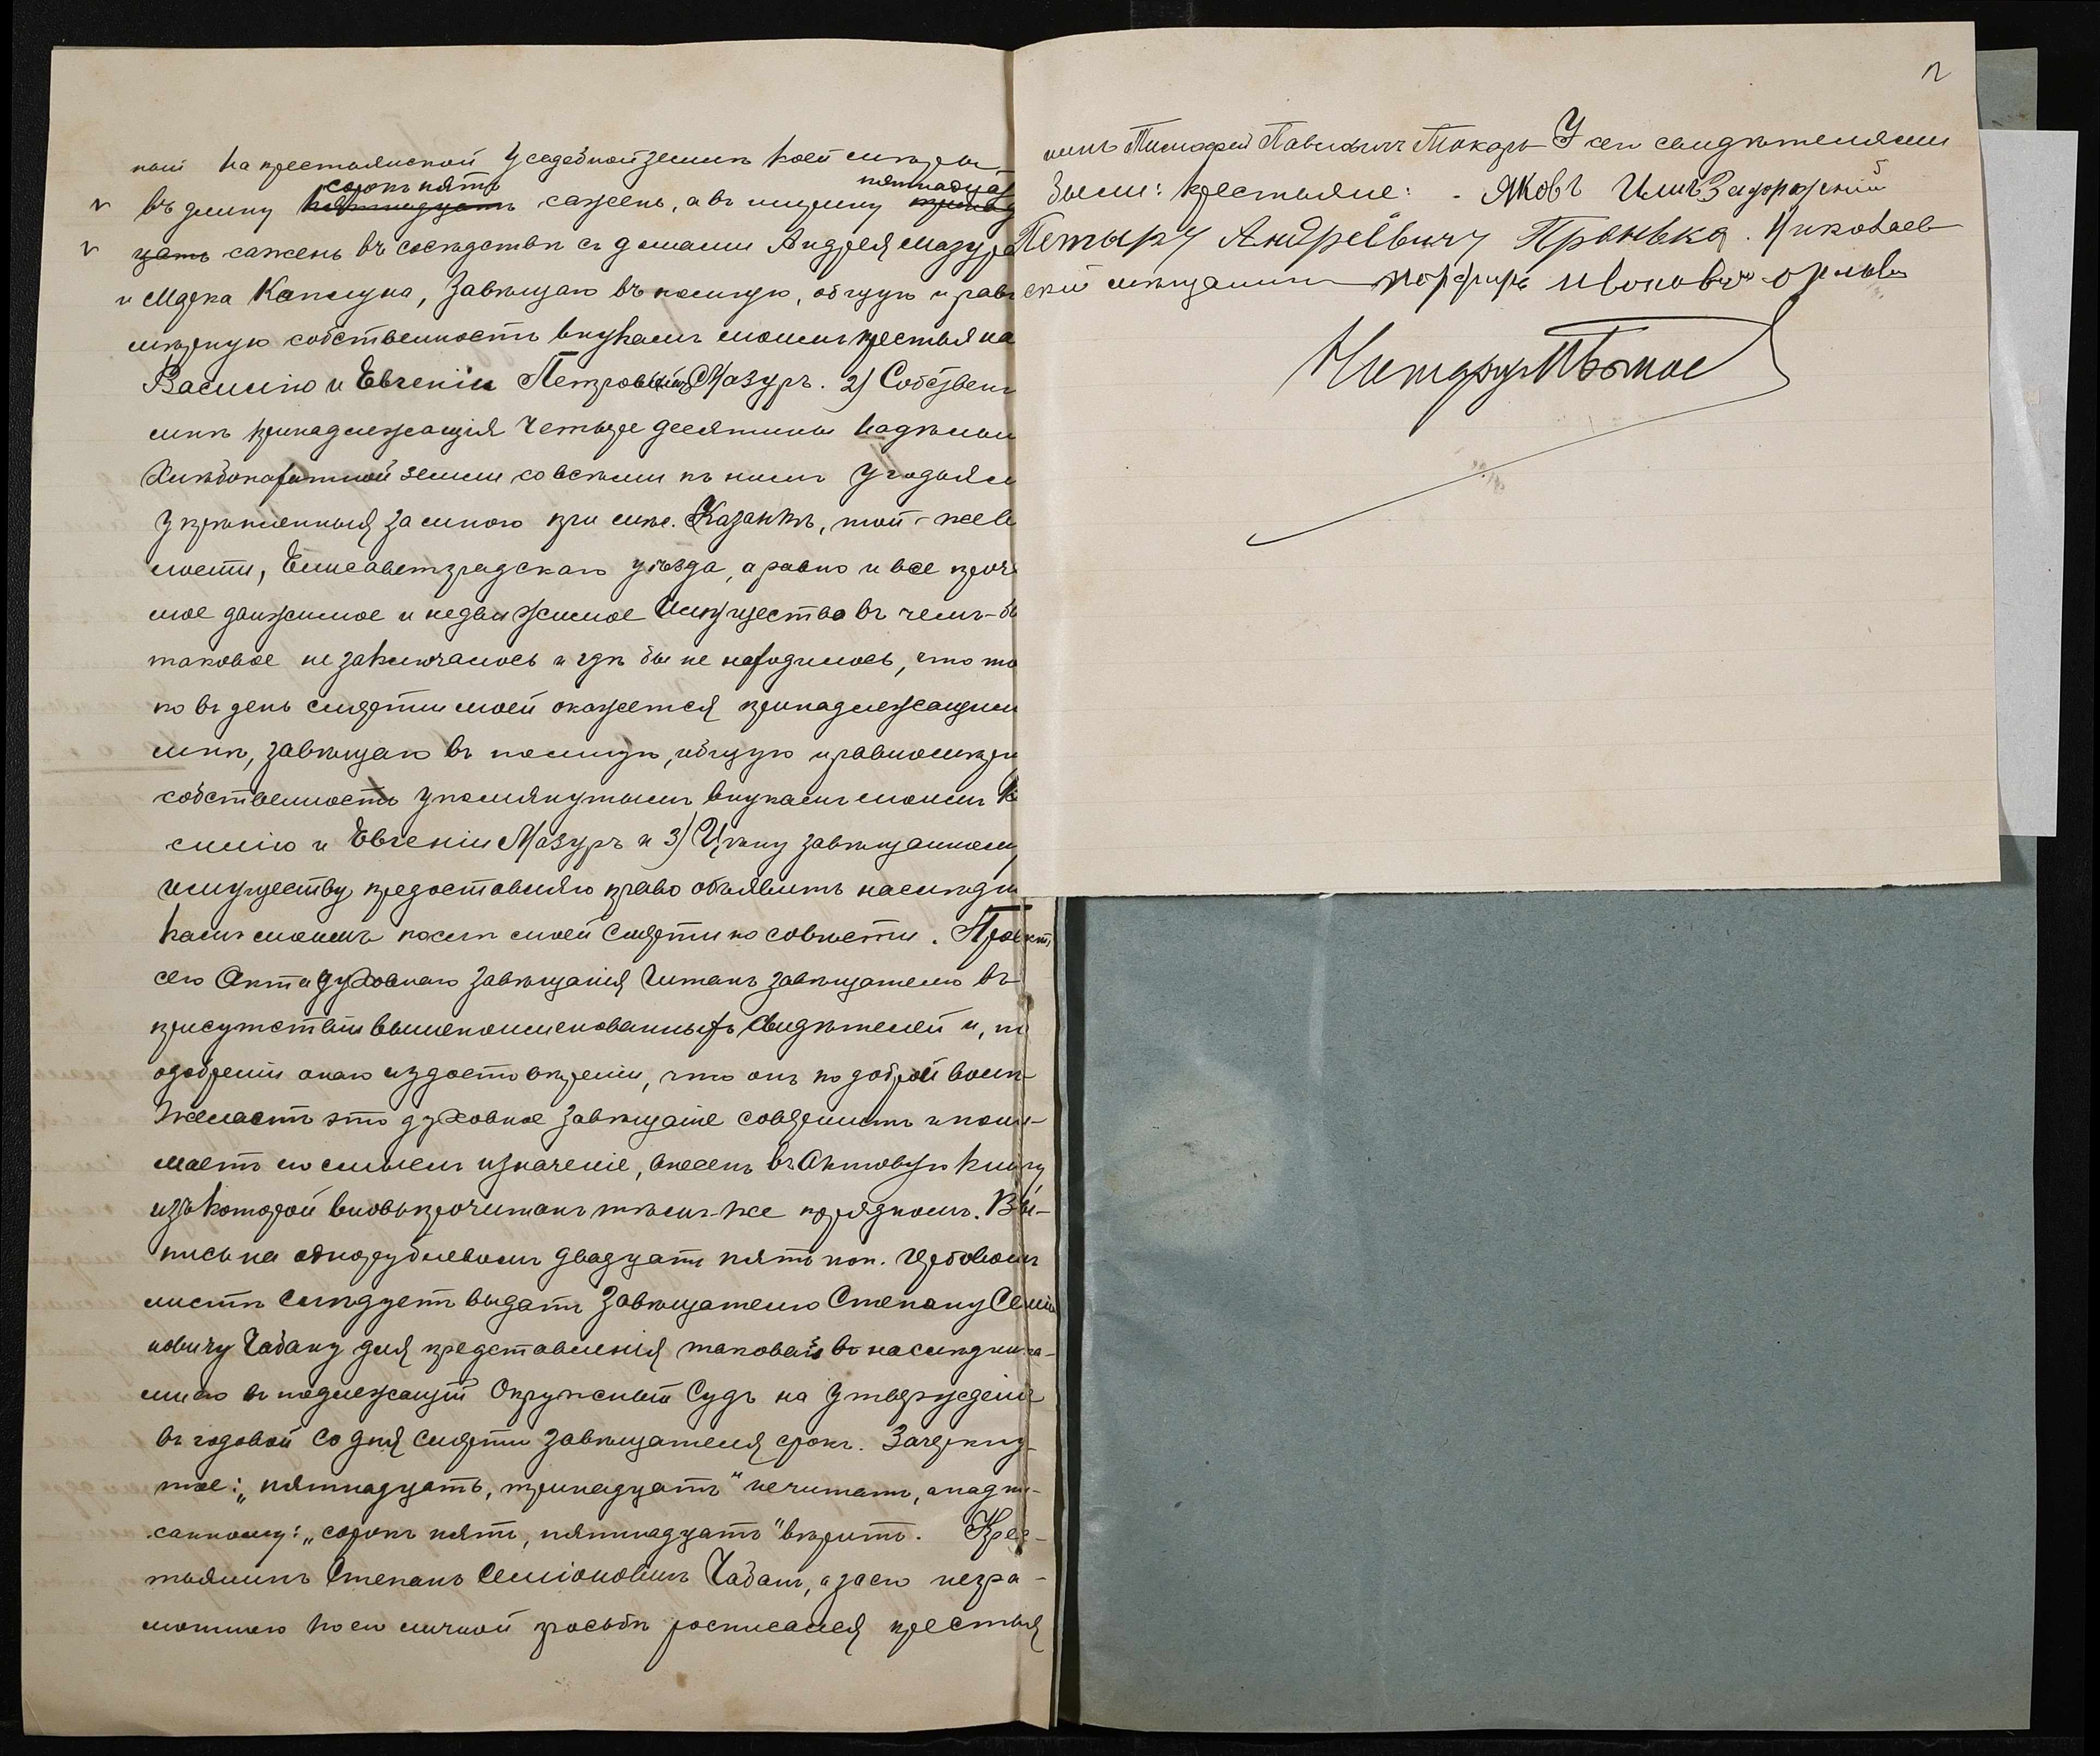 ный на крестьянской усадебной земле коей мѣрою
въ длину пятнадцать сорокъ пять сажень, а въ ширину тринад пятнадца
цать сажень въ сосѣдствѣ съ домами Андрея Мазура
и Марка Капшука, завѣщаю въ полную, общую и равно
мѣрную собственность внукамъ моимъ крестьяна
Василію и Евгенію Петровымъ Мазуръ. 2) Собствен
мнѣ принадлежащія четыре десятины надѣльн
хлѣбопахатной земли со всѣми къ нимъ угодьям
укрѣпленныя за мною при мѣс. Казанкѣ, той-же во
лости, Елисаветградскаго уѣзда, а равно и все проч
мое движимое и недвижимое имущество въ чемъ-бы
таковое не заключалось и гдѣ бы не находилось, что то
ко въ день смерти моей окажется принадлежащим
мнѣ, завѣщаю въ полную, общую и равномѣрн
собственность упомянутымъ внукамъ моимъ Ва
силію и Евгенію Мазуръ и 3) Цѣну завѣщанному
имуществу предоставляю право объявить наслѣдн
камъ моимъ послѣ моей смерти по совѣсти. Проектъ
сего акта духовнаго завѣщанія читанъ завѣщателю въ
присутствіи вышепоименованныхъ свидѣтелей и, по
одобреніи онаго и удостовѣреніи, что онъ по доброй волѣ
желаетъ это духовное завѣщаніе совершить и пони-
маетъ его смыслъ и значеніе, внесенъ въ актовую книгу,
изъ которой вновь прочитанъ тѣмъ-же порядкомъ. Вы-
пись на однорублевомъ двадцати пяти коп. гербовомъ
листѣ слѣдуетъ выдать завѣщателю Степану Семіо
новичу Чабану для представленія таковой его наслѣдника-
ми въ подлежащій Окружный Судъ на утвержденіе
въ годовой со дня смерти завѣщателя срокъ. Зачеркну-
тое: „пятнадцать, тринадцать" не читать, а надпи-
санному: „сорокъ пять, пятнадцать" вѣрить. Крес-
тьянинъ Степанъ Семіоновичъ Чабанъ, а за его негра-
мотною по его личной просьбѣ росписался крестья
нинъ Тимофей Павловичъ Токарь У сего свидѣтелями
2
были: крестьяне: Яковъ Запорожскій
Петыру Андреёвичу Николаев
скій мѣщанинъ Порфиръ Ивоновъ
Нотаріусъ